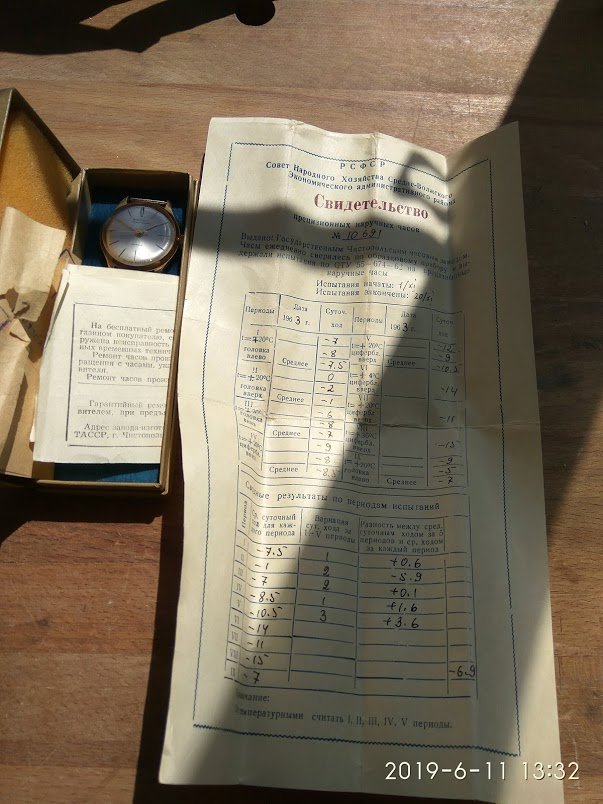 РСФСР
Совет Народного Хозяйства Средне-Волжского
Экономического административного района
Свидетельство
прецизионных наручных часов
№ 10691
Выдано: Государственным Чистопольским часовым заводом.
Часы ежедневно сверялись по образцовому прибору и
держали испытания по ОТУ 55—674—62 на прецизионные
наручные часы
Испытания начаты: 1/XI
Испытания закончены: 20/XI
Периоды Дата 1963 г. Суточ. ход Периоды Дата 1963 г. Суточ. ход
I
t=+20°C -7
головка влево -8 -15
Среднее -7.5 -9
II -10.5
t=+20°C 0 t=+4°C
головка вверх -2 цифербл. вверх -14
Среднее -1
III
-6 цифербл. -11
-8
Среднее -7
-9 цифербл. вверх -15
-8 -9
t=+20°C -5
Среднее -8.5 головка влево Среднее -7
Сводные результаты по периодам испытаний
Периоды Ср. суточный ход для каждого периода Вариация сут. хода за I—V периоды Разность между сред. суточным ходом за 5 периодов и ср. ходом за каждый период
-7.5 1 +0.6
II -1 2 -5.9
-7 2 +0.1
-8.5 1 +1.6
-10.5 3 +3.6
VI -14
VII -11
VIII -15
-7 -6.9
Температурными считать I, II, III, IV, V периоды.
На бесплатный ремо
газином покупателю, с
ружена неисправность
ных временных техниче
Ремонт часов произ
ращения с часами, ук
вителя.
Ремонт часов прои
Гарантийный ремо
вителем, при предъ
Адрес завода-изгот
ТАССР, г. Чистополь
2019-6-11 13:32